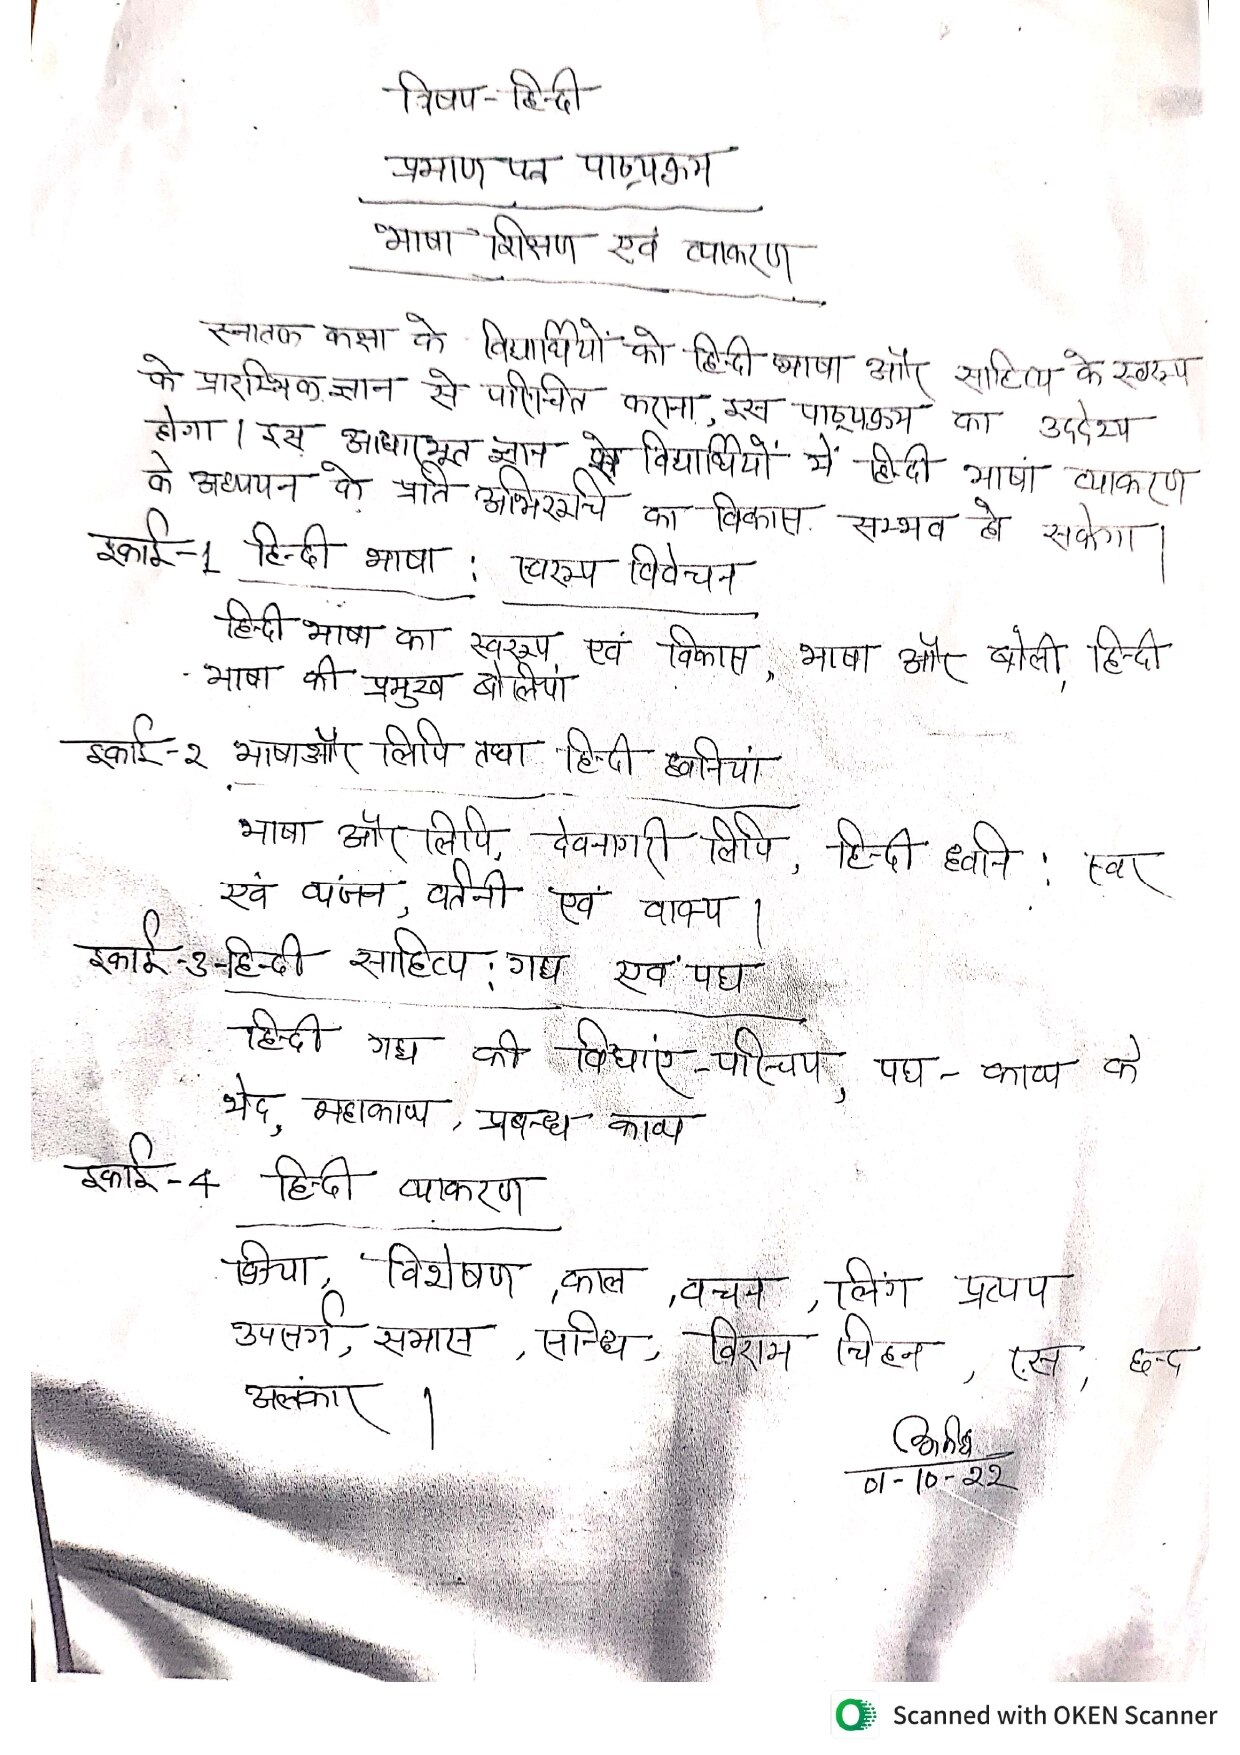 विषय - हिन्दी
प्रमाण पत्र पाठ्यक्रम
भाषा शिक्षण एवं व्याकरण
स्नातक कक्षा के विद्यार्थियों को हिन्दी भाषा और साहित्य के स्वरूप
के प्रारम्भिक ज्ञान से परिचित कराना, इस पाठ्यक्रम का उद्देश्य
होगा। इस आधारभूत ज्ञान से विद्यार्थियों में हिन्दी भाषा व्याकरण
के अध्ययन के प्रति अभिरूचि का विकास सम्भव हो सकेगा।
इकाई-1 हिन्दी भाषा : स्वरूप विवेचन
हिन्दी भाषा का स्वरूप एवं विकास, भाषा और बोली, हिन्दी
भाषा की प्रमुख बोलियां
इकाई-२ भाषा और लिपि तथा हिन्दी ध्वनियां
भाषा और लिपि, देवनागरी लिपि, हिन्दी ध्वनि : स्वर
एवं व्यंजन, वर्तनी एवं वाक्य।
इकाई-3-हिन्दी साहित्य : गद्य एवं पद्य
हिन्दी गद्य की विधाएं - परिचय, पद्य - काव्य के
भेद, महाकाव्य, प्रबन्ध काव्य
इकाई-4 हिन्दी व्याकरण
क्रिया, विशेषण, काल, वचन, लिंग प्रत्यय
उपसर्ग, समास, सन्धि, विराम चिहन, रस, छन्द
अलंकार।
01-10-22
Scanned with OKEN Scanner